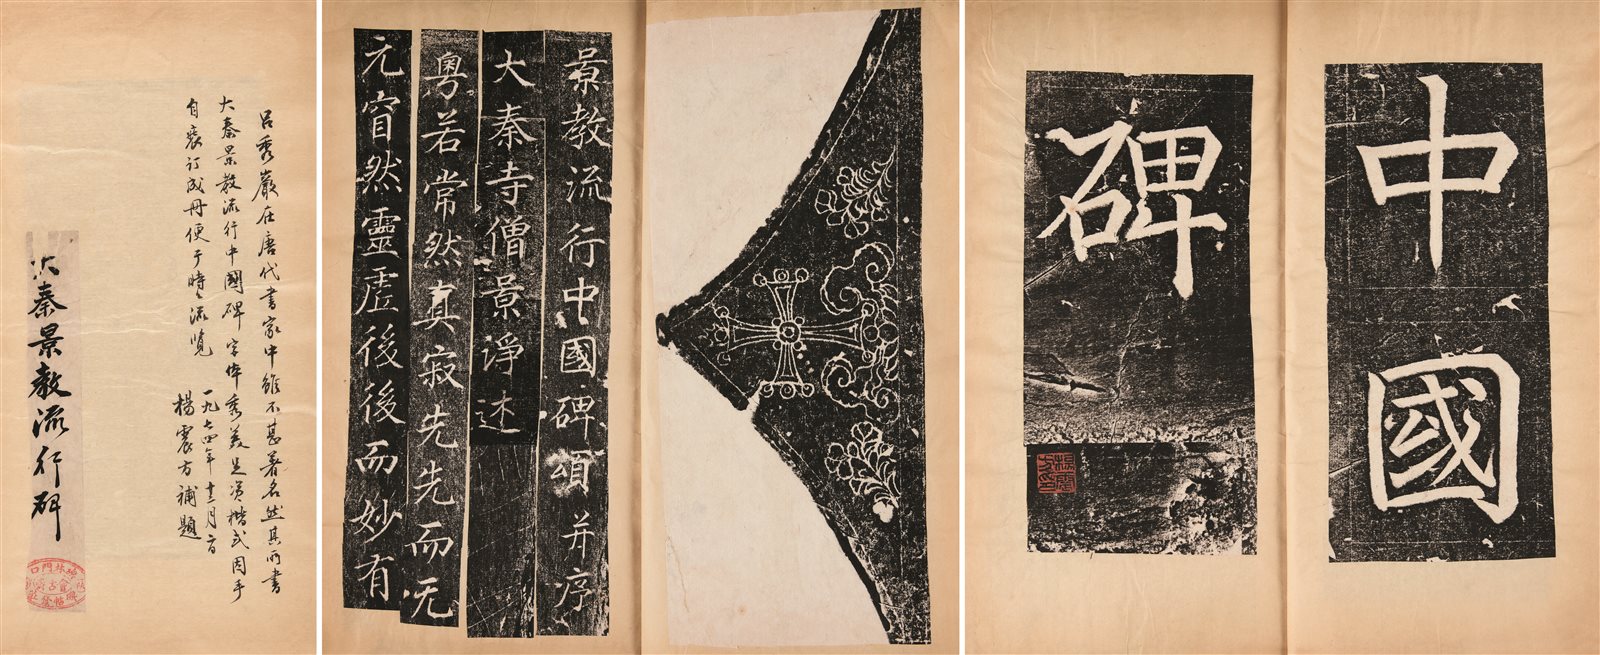 呂秀巖在唐代書家中雖不甚著名然其所書
大秦景教流行中國碑字体秀美足資楷式因手
自裝訂成冊便于時々流覽
一九七四年十二月
楊震方補題
大秦景教流行碑
景教流行中國碑頌并序
大秦寺僧景淨述
粵若常然真寂先先而无
元窅然靈虛後後而妙有
中國
碑